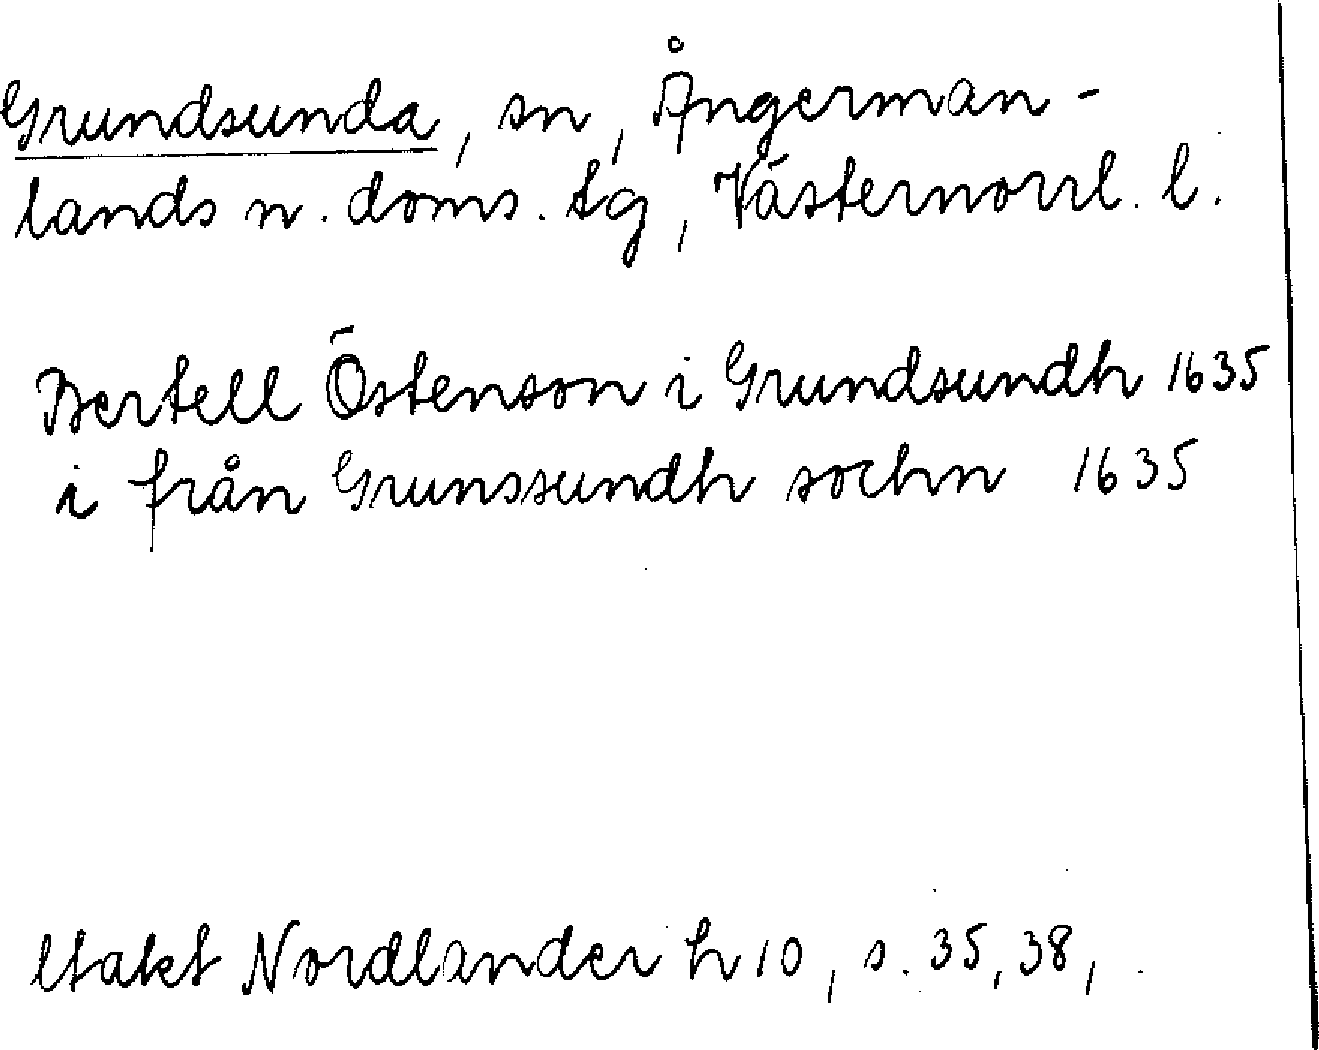 Grundsunda, sn, Ångerman-
lands n. doms. tg, Västernorrl. l.
Bertell Östenson i Grundsundh 1635
i från Grunssundh sochn 1635
Nordlander h 10, s. 35, 38,